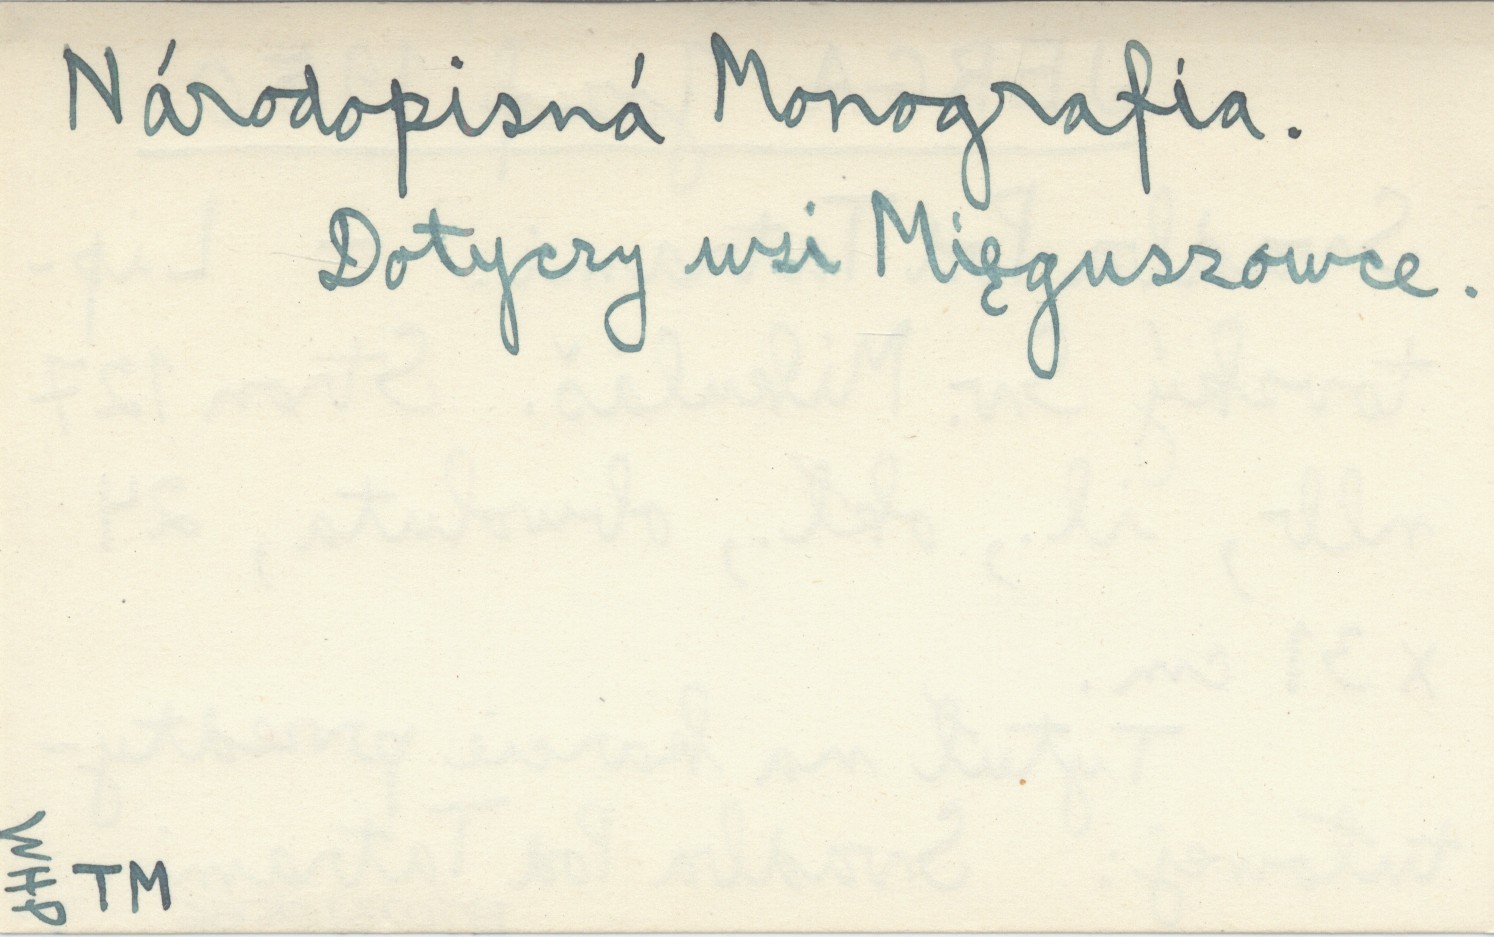 Národopisná Monografia.
Dotyczy wsi Mięguszowce.
WHP
TM